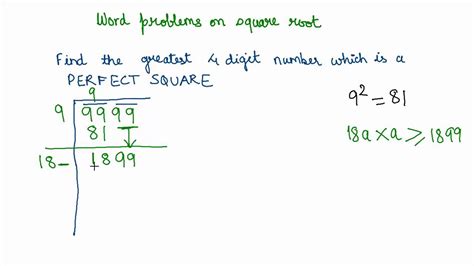 Word problems on square root
Find the greatest 4 digit number which is a
PERFECT SQUARE
9
9 99 99
81
18– 1899
9² = 81
18a × a ⩾ 1899